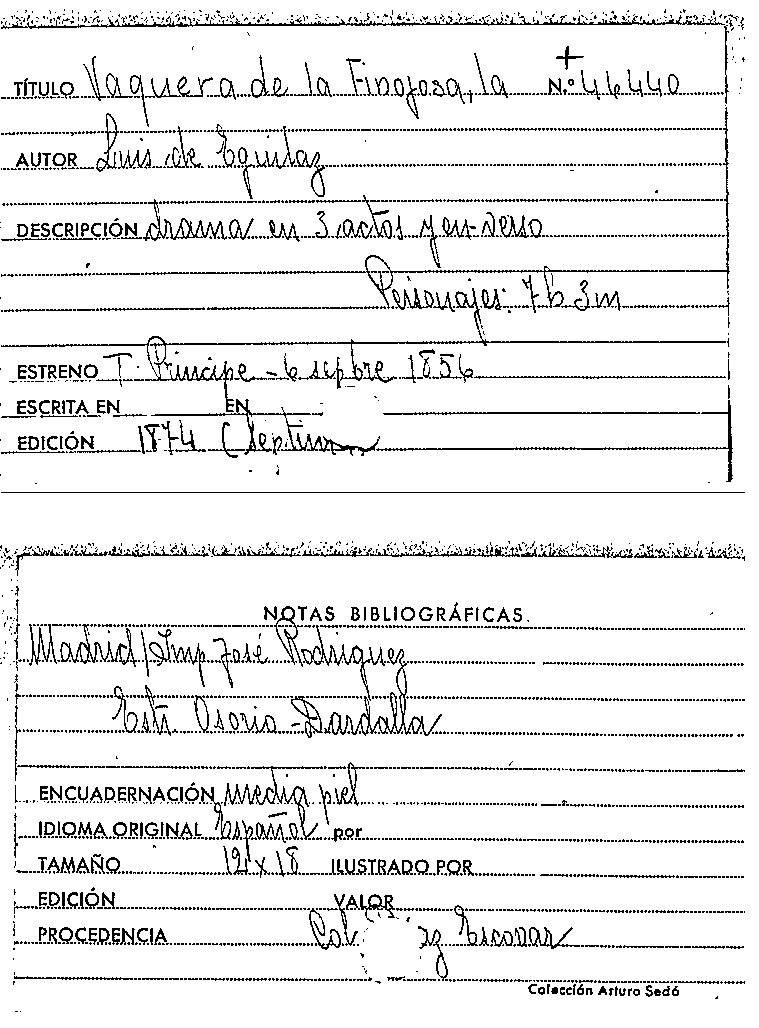 TÍTULO Vaquera de la Finojosa, la N.º 46440
AUTOR Luis de Eguilaz
DESCRIPCIÓN drama en 3 actos y en verso
Personajes: 7h 3m
ESTRENO T. Príncipe - 6 sepbre 1856
ESCRITA EN EN
EDICIÓN 1874 (septima
NOTAS BIBLIOGRÁFICAS.
Madrid/Imp José Rodriguez
Estr. Osorio - Dardalla
ENCUADERNACIÓN media piel
IDIOMA ORIGINAL Español por
TAMAÑO 12 x 18 ILUSTRADO POR
EDICIÓN VALOR
PROCEDENCIA Col Escovar
Colección Arturo Sedó